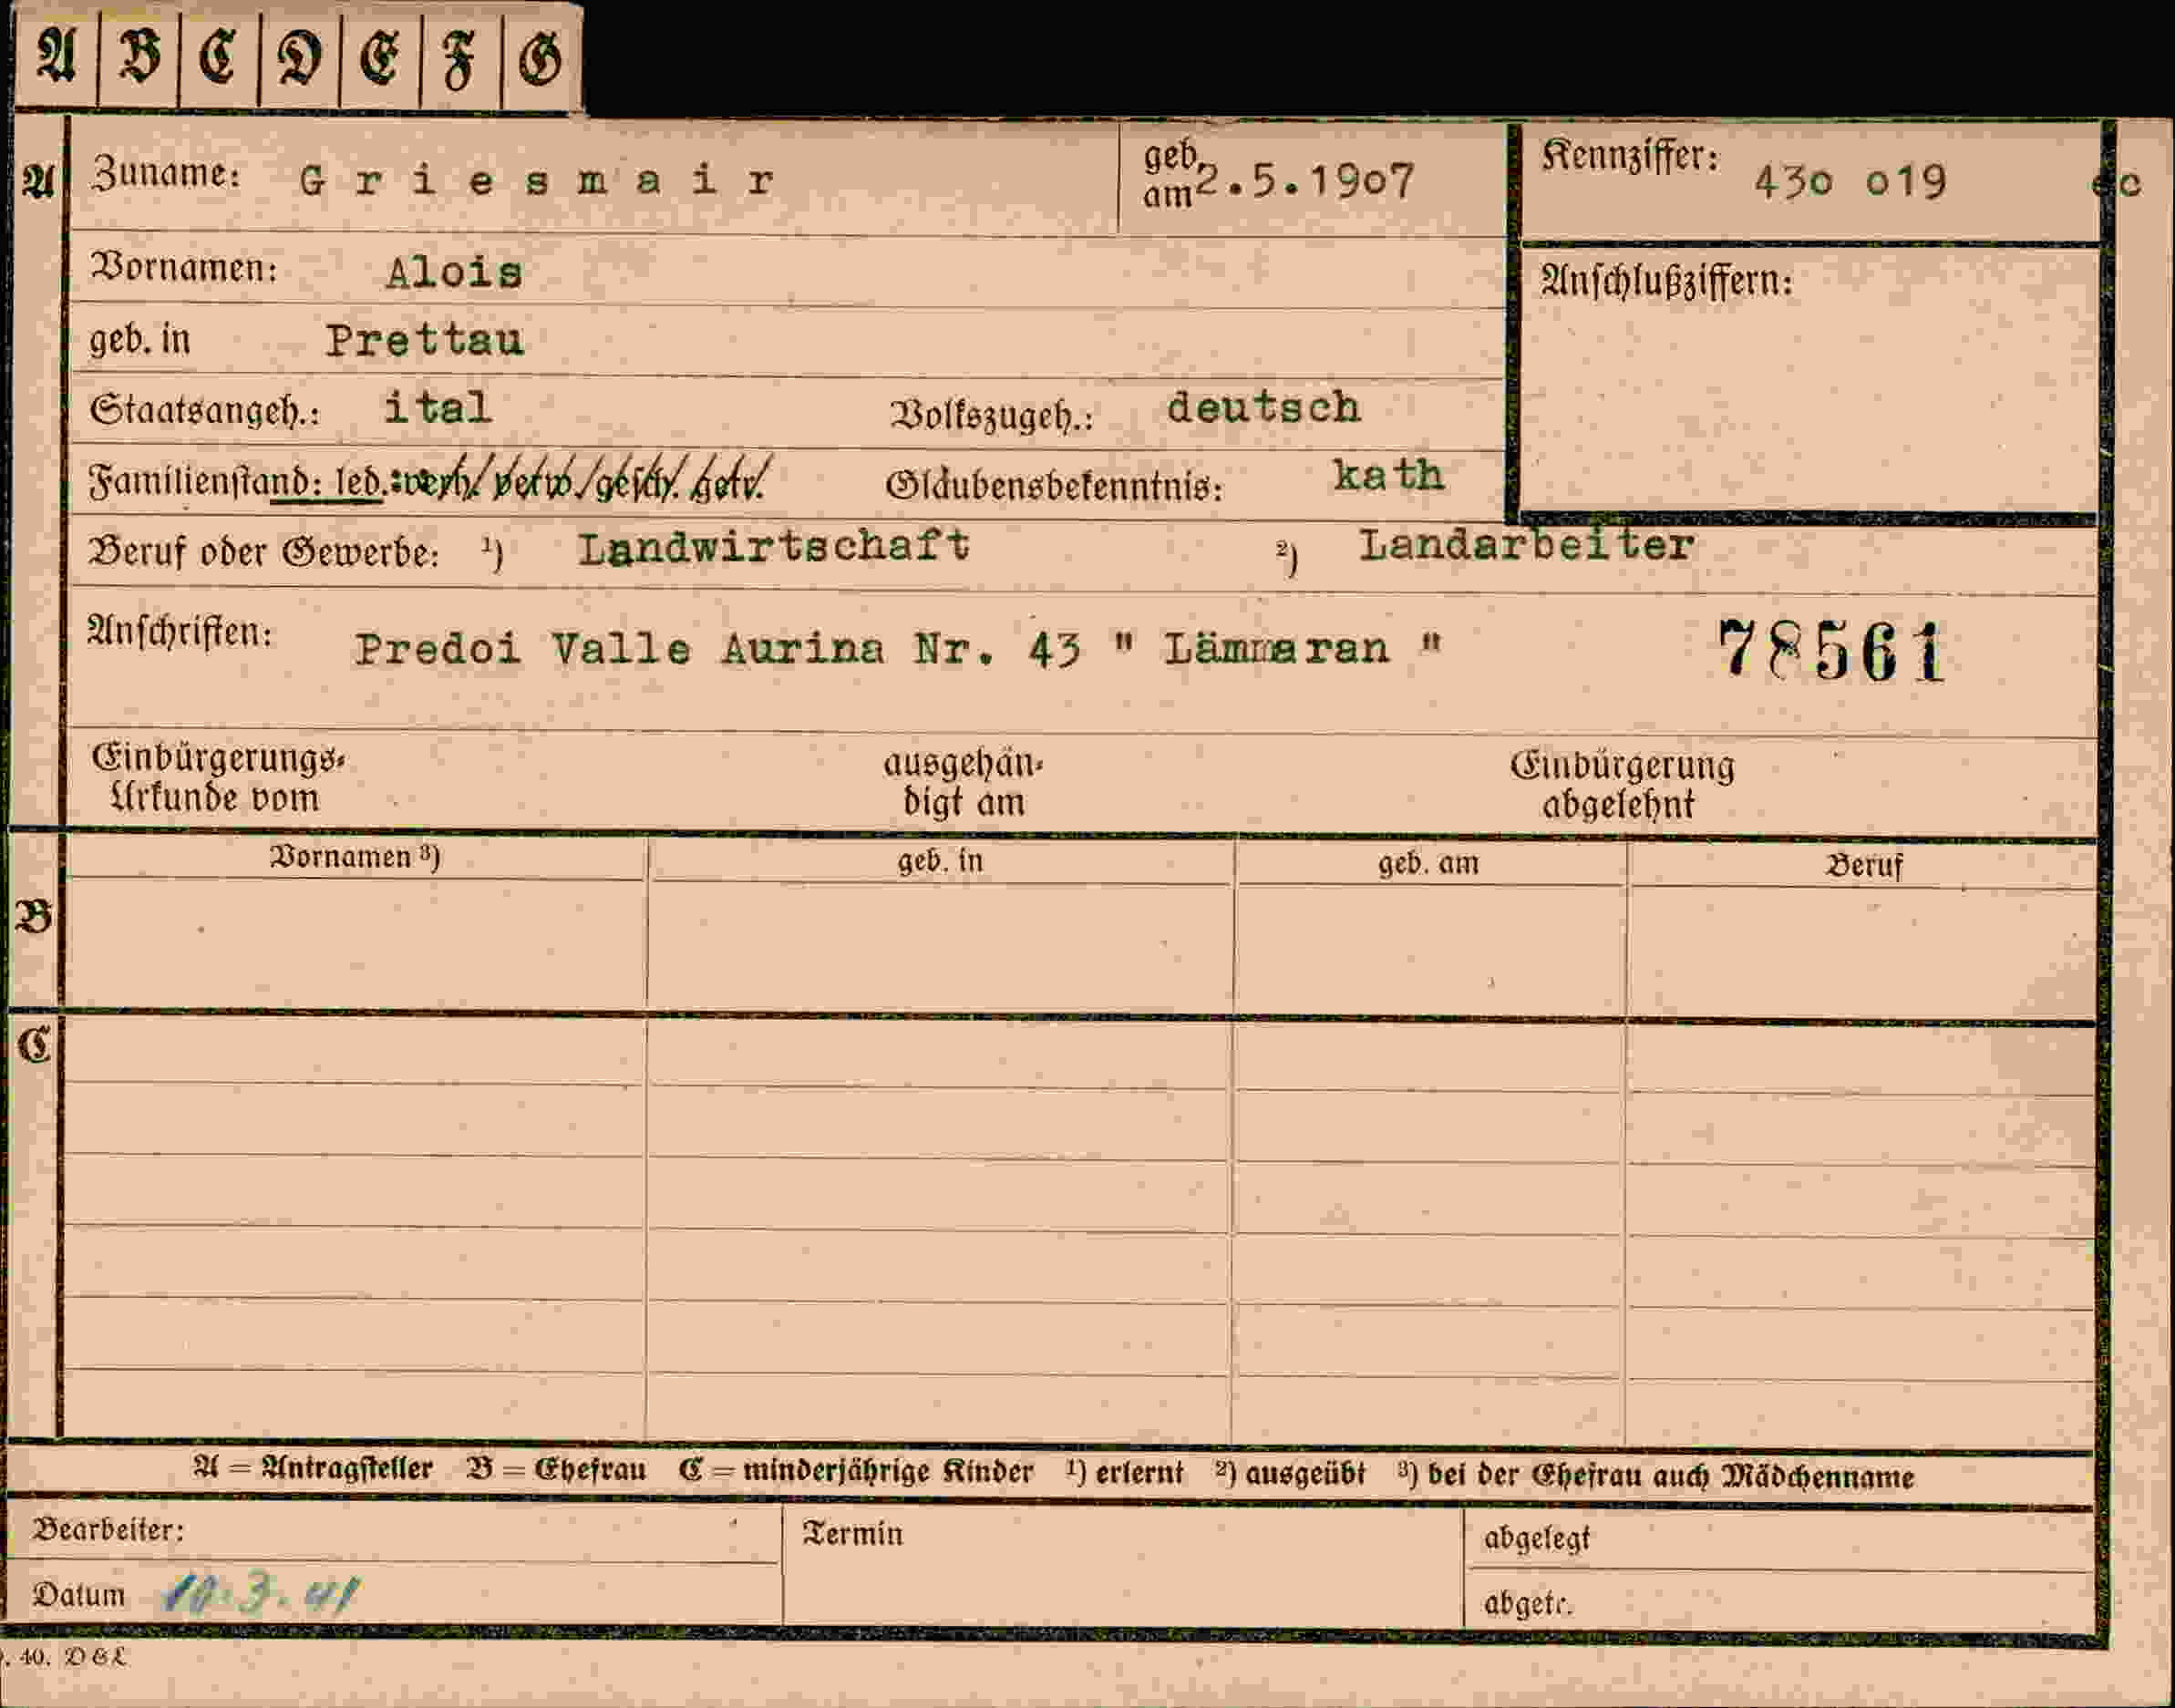 A B C D E F G
A Zuname: Griesmair geb. am 2.5.1907 Kennziffer: 43o o19
Vornamen: Alois Anschlußziffern:
geb. in Prettau
Staatsangeh.: ital Volkszugeh.: deutsch
Familienstand: led. verh. verw. gesch. getr. Glaubensbekenntnis: kath
Beruf oder Gewerbe: ¹) Landwirtschaft ²) Landarbeiter
Anschriften: Predoi Valle Aurina Nr. 43 " Lämmaran " 78561
Einbürgerungs- ausgehän- Einbürgerung
Urkunde vom digt am abgelehnt
Vornamen ³) geb. in geb. am Beruf
B
C
A = Antragsteller B = Ehefrau C = minderjährige Kinder ¹) erlernt ²) ausgeübt ³) bei der Ehefrau auch Mädchenname
Bearbeiter: Termin abgelegt
Datum 10.3.41 abgetr.
40. D&L